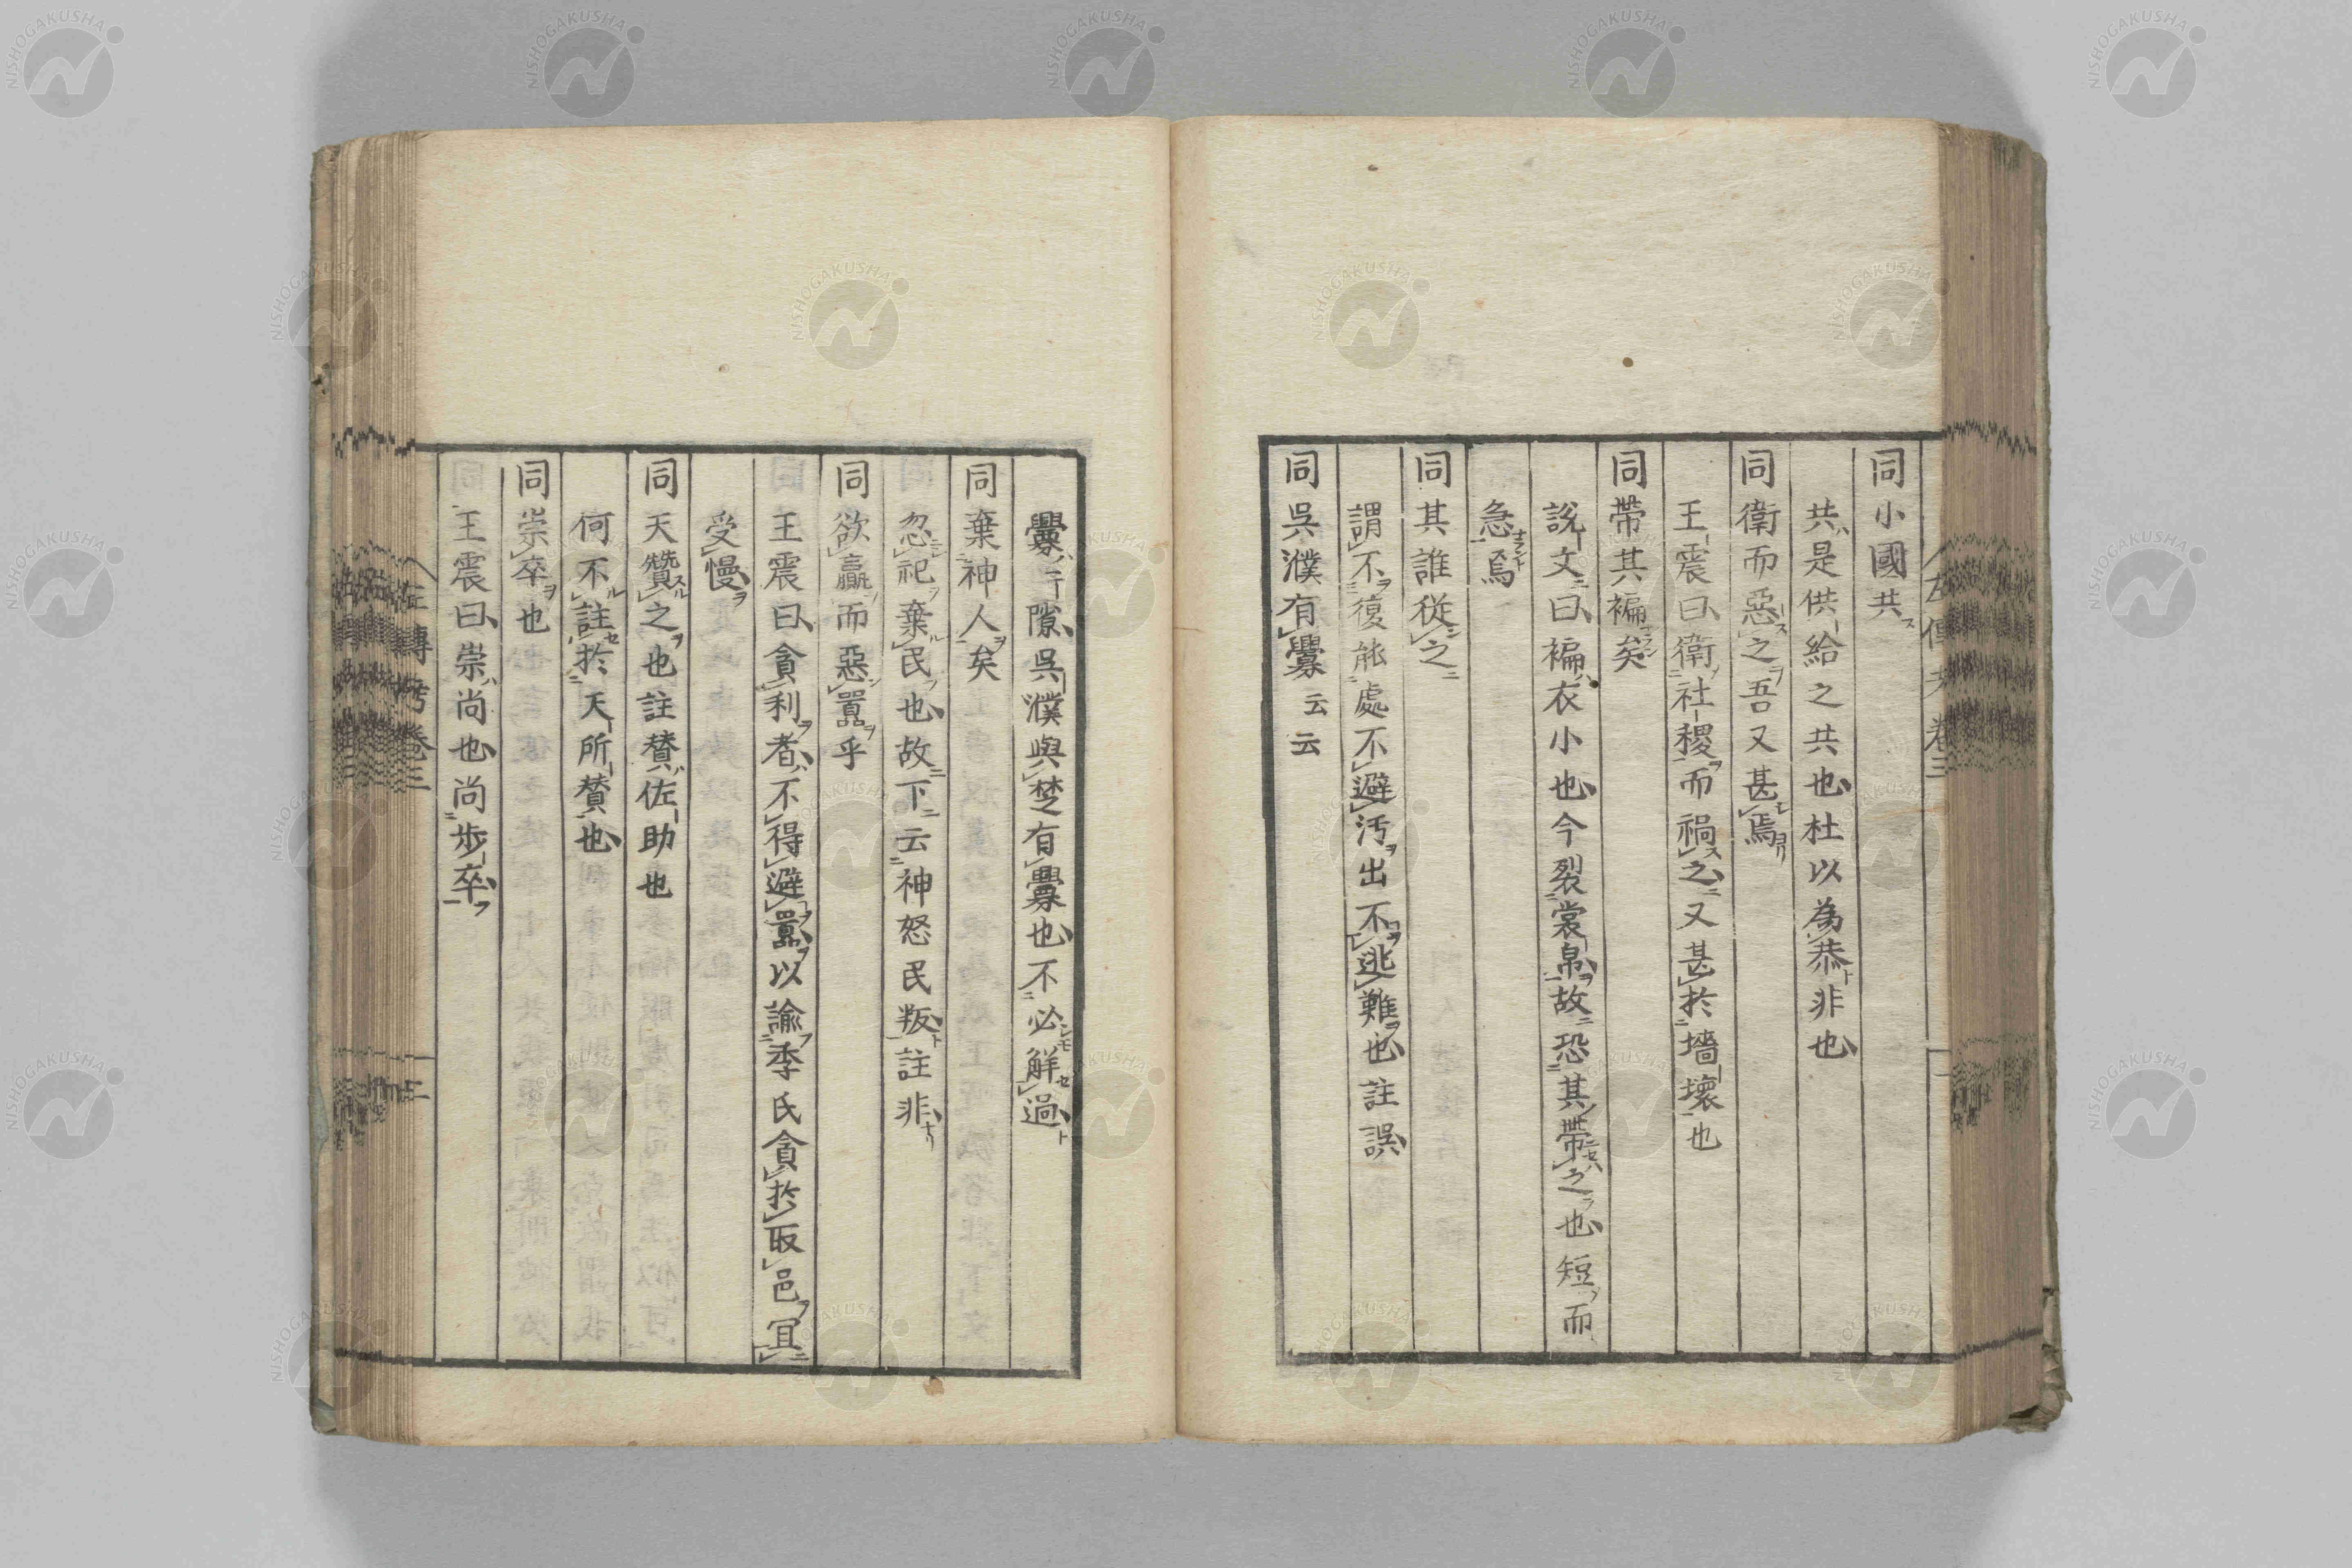 同小國共ス
共ハ是供給之共也杜以為恭ト非也
同衛而惡之吾又甚焉
王震曰衛社稷而禍之又甚於墻壞也
同帶其褊矣
說文曰褊衣小也今裂裳帛故恐其帶之也短而
急焉
同其誰從之
謂不復能處不避汚出不逃難也註誤
同吳濮有釁云云
釁隙吳濮與楚有釁也不必解過
同棄神人矣
忽祀棄民也故下云神怒民叛註非
同欲贏而惡嚚乎
王震曰貪利者不得避嚚以諭季氏貪於取邑冝
受慢
同天贊之也註賛佐助也
何不註於天所賛也
同崇卒也
王震曰崇尚也尚步卒
左傳考卷三
NISHOGAKUSHA